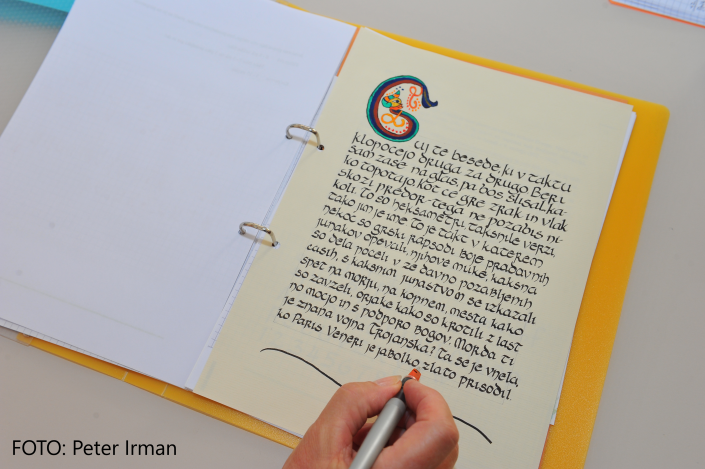 Čuj te besede, ki v taktu
klopočejo druga za drugo Beri
sam zase na glas, pa boš slišal ka-
ko topotajo, kot če gre zrak in vlak
skozi predor - tega ne pozabiš ni-
koli. To so heksametri, takšnile verzi,
tako jim je ime To je takt v katerem
nekoč so grški rapsodi boje pradavnih
junakov opevali, njihove muke, kakšna
so dela počeli v že davno pozabljenih
časih, s kakšnim junaštvom so se izkazali
spet na morju, na kopnem, mesta kako
so zavzeli, orjake kako so krotili z last
no močjo in s podporo bogov. Morda ti
je znana vojna Trojanska? Ta se je vnela,
ko Paris Veneri je jabolko zlato prisodil.
FOTO: Peter Irman